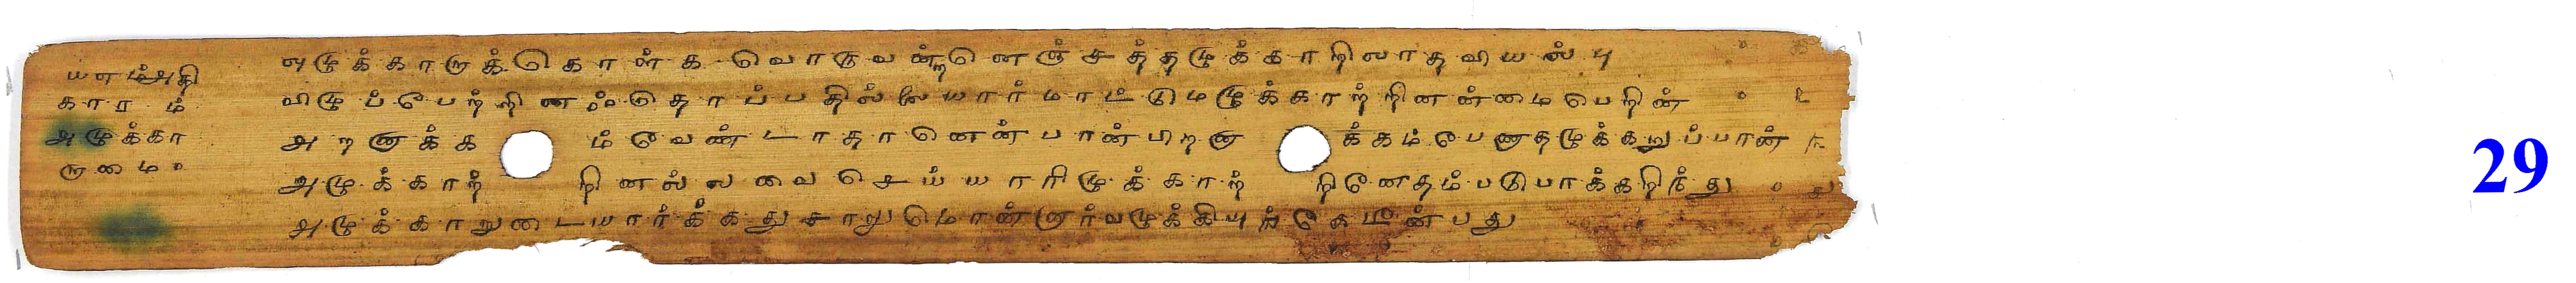 யனம்அதி
காரம்
அழுக்கா
ருமை ௦
அழுக்காருக்கொள்க வொருவன்றனெஞ்சத்தழுக்காறிலாதவியல்பு ௦
விழுப்பேற்றினஃதொப்பதில்லையார்மாட்டுமழுக்காற்றினன்மைபெறின் ௦ ௨
அறனாக்கம்வேண்டாதானென்பான்பிறனாக்கம்பேணாதழுக்கறுப்பான் ௩
அழுக்காற்றினல்லவைசெய்யாரிழுக்காற்றினேதம்படுபாக்கறிந்து ௦
அழுக்காறுடையார்க்கதுசாலுமொன்னார்வழுக்கியுங்கேடீன்பது
29